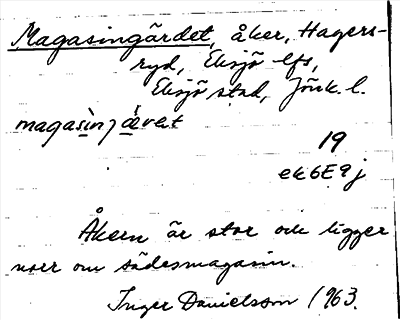 Magasingärdet, åker, Hagers-
ryd, Eksjö lfs,
Eksjö stad, Jönk. l.
19
ek6E9j
Åkern är stor och ligger
norr om sädesmagasin.
Inger Danielsson 1963.